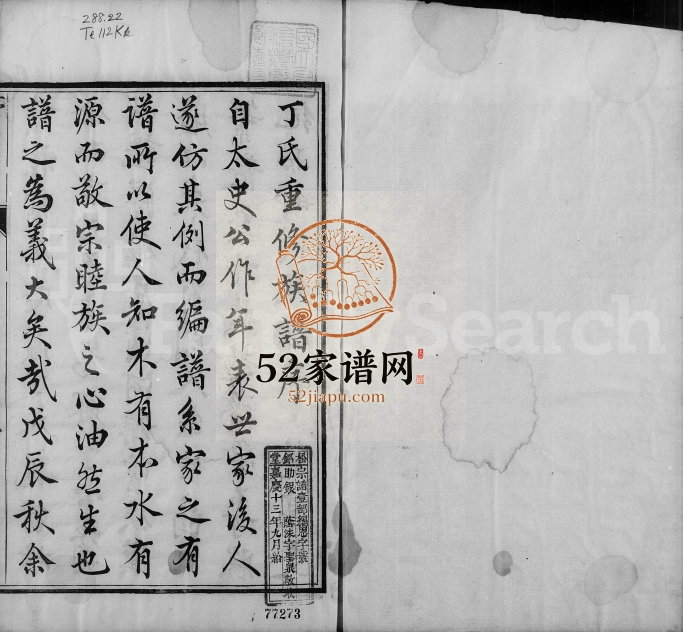 288.22
Te 112Kk
丁氏重修族譜序
自太史公作年表世家後人
遂仿其例而編譜系家之有
譜所以使人知木有本水有
源而敬宗睦族之心油然生也
譜之為義大矣哉戊辰秋余
堂嘉慶十三年九月
77273
FamilySearch
52家谱网
52jiapu.com